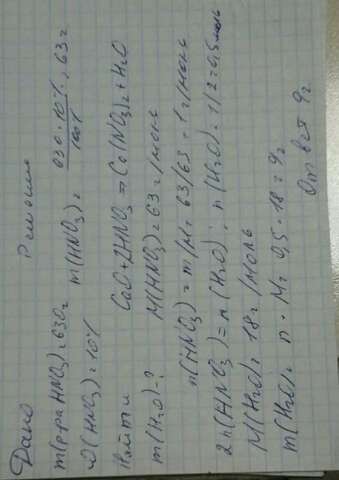 Дано
m(р-ра HNO3)=630г
ω(HNO3)=10%
Найти
m(H2O)-?
Решение
m(HNO3)= 630·10% / 100% = 63г
CaO+2HNO3=Ca(NO3)2+H2O
M(HNO3)=63г/моль
n(HNO3)=m/M=63/63=1г/моль
2n(HNO3)=n(H2O); n(H2O)=1/2=0,5моль
M(H2O)=18г/моль
m(H2O)= n·M= 0,5·18=9г
Ответ 9г